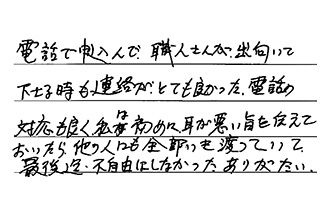 電話で申込んで、職人さんが、出向いて
下さる時も連絡が、とても良かった、電話の
対応も良く私は初めに耳が悪い旨を伝えて
おいたら、他の人にも全部いを渡っていて、
最後迄、不自由にしなかった、ありがたい、